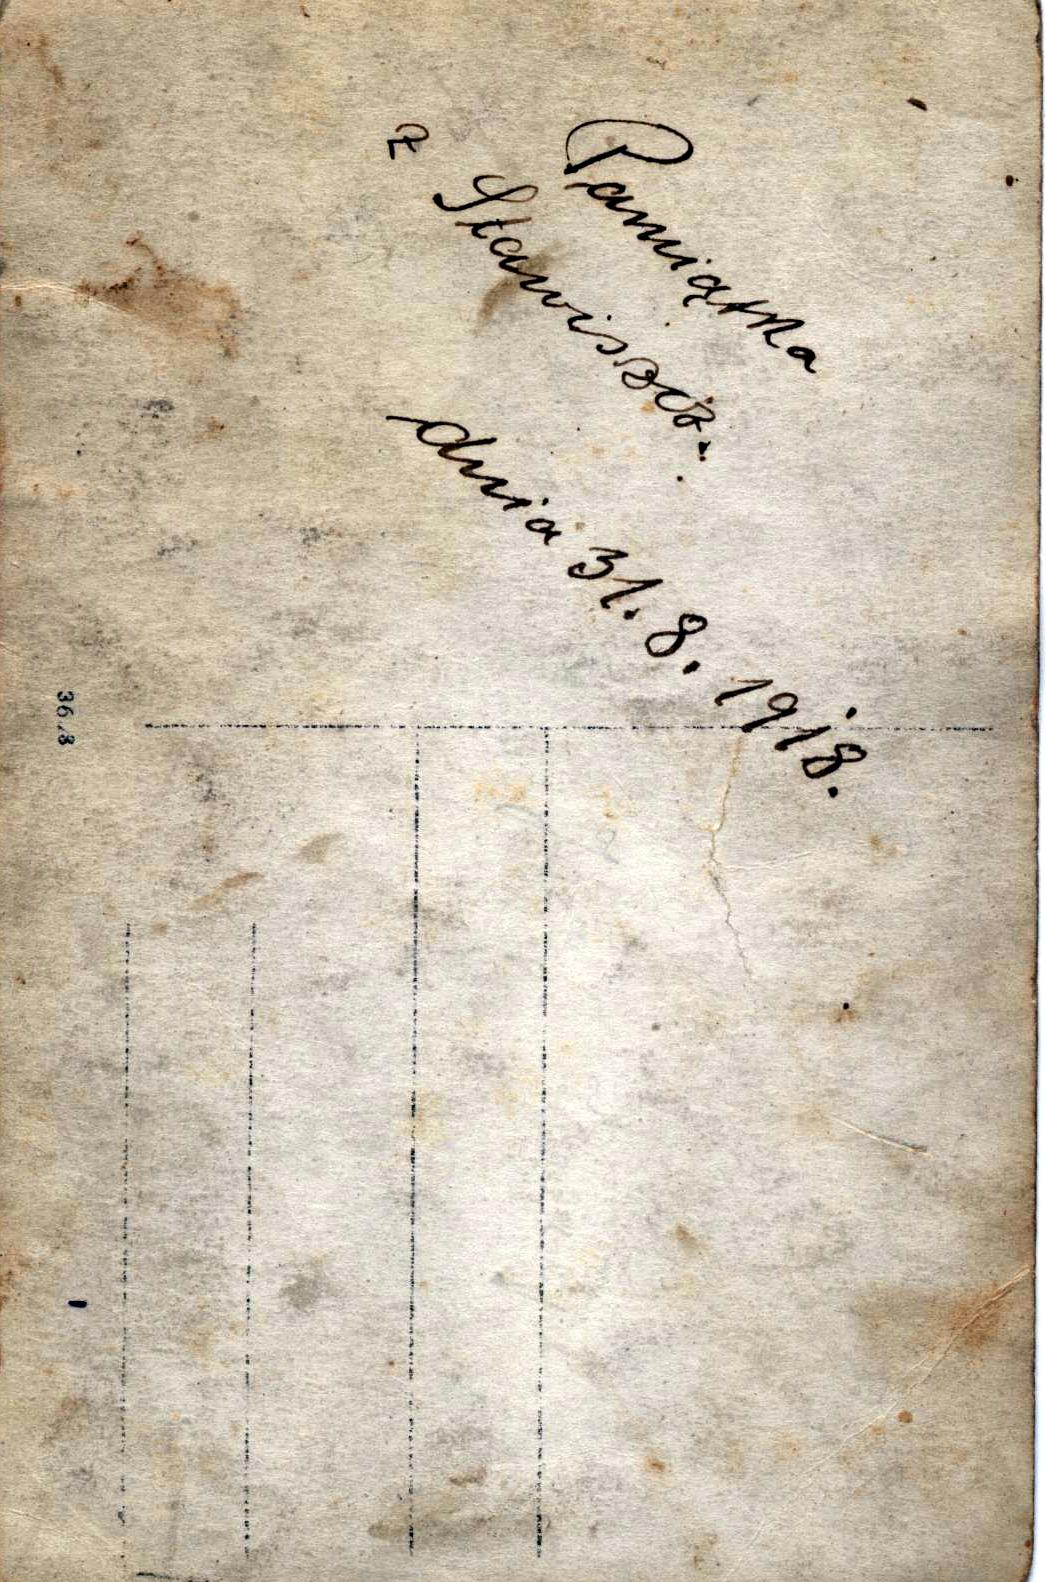 Pamiątka
z Stawiszcz.
dnia 31. 8. 1918.